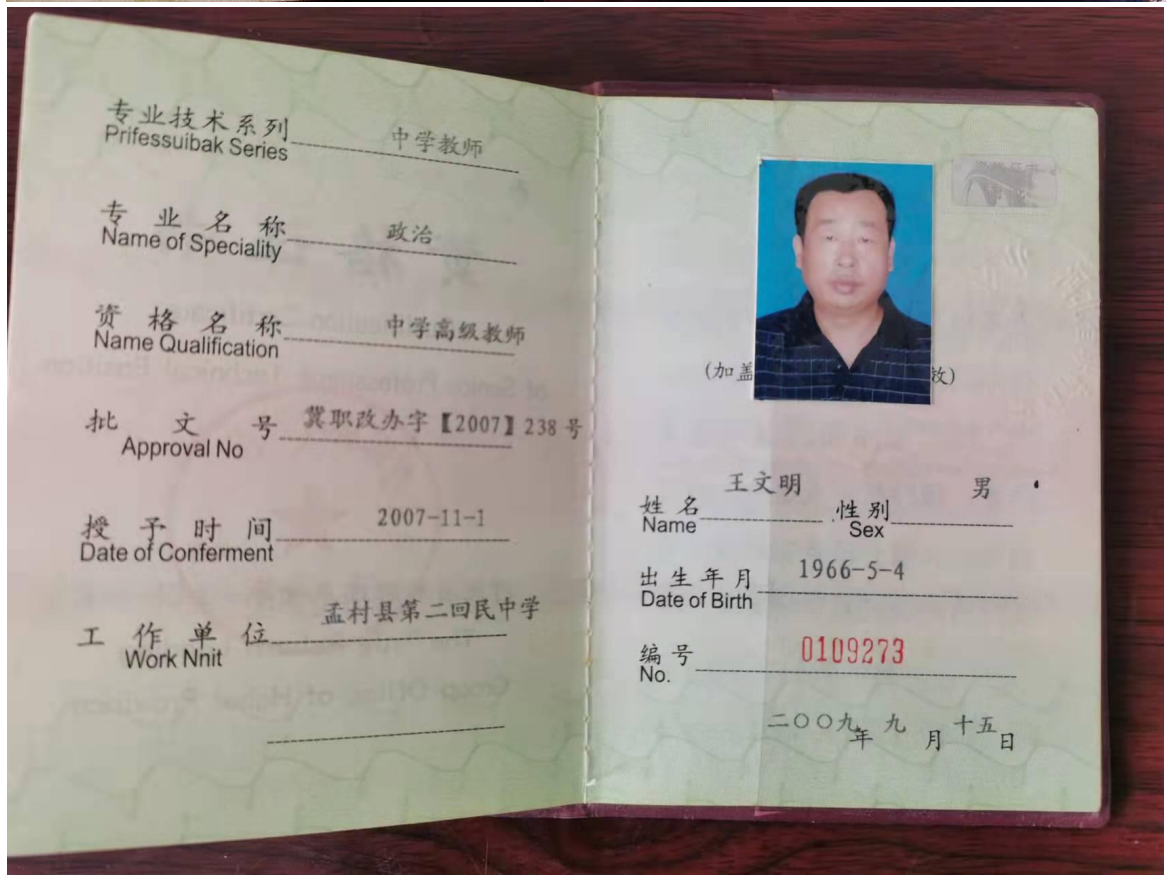 专业技术系列 中学教师
Prifessuibak Series
专业名称 政治
Name of Speciality
资格名称 中学高级教师
Name Qualification
批文号 冀职改办字【2007】238号
Approval No
授予时间 2007-11-1
Date of Conferment
工作单位 孟村县第二回民中学
Work Nnit
(加盖 效)
姓名 王文明 性别 男
Name Sex
出生年月 1966-5-4
Date of Birth
编号 0109273
No.
二〇〇九年九月十五日